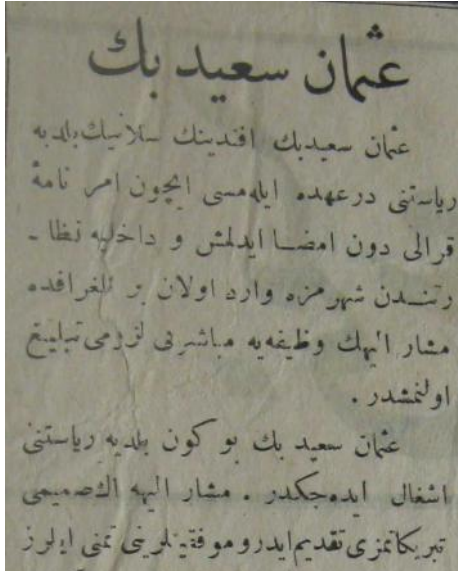 عثمان سعيد بك
عثمان سعيدبك افندينك سلانيك بلديه
رياستنى درعهده ايله‌مسى ايچون امر نامهٔ
قرالى دون امضا ايدلمش و داخليه نظا ـ
رتندن شهرمزه وارد اولان بر تلغرافده
مشار اليهك وظيفه‌يه مباشرتى لزومى تبليغ
اولنمشدر .
عثمان سعيد بك بو كون بلديه رياستنى
اشغال ايده‌جكدر . مشار اليهه اك صميمى
تبريكاتمزى تقديم ايدر و موفقيتلرينى تمنى ايلرز